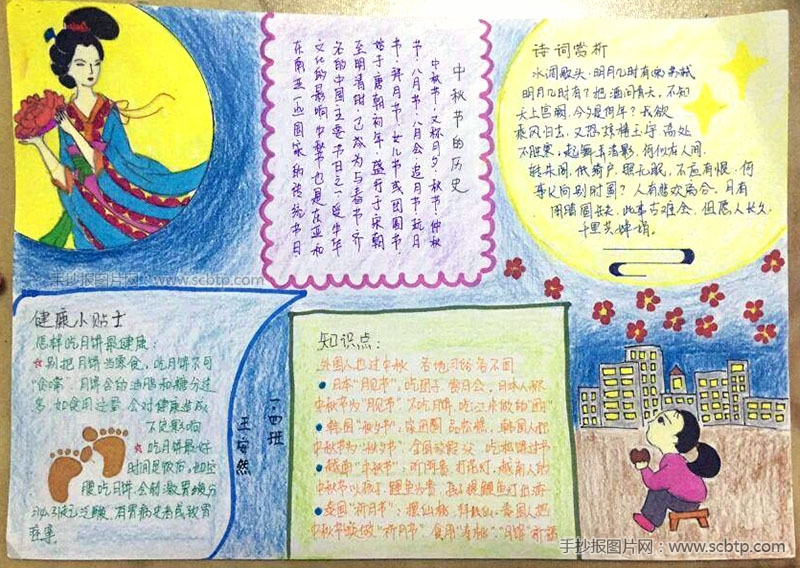 中秋节的历史
中秋节，又称月夕、秋节、仲秋
节、八月节、八月会、追月节、玩月
节、拜月节、女儿节或团圆节，
始于唐朝初年，盛行于宋朝，
至明清时，已成为与春节齐
名的中国主要节日之一。受中华
文化的影响，中秋节也是东亚和
东南亚一些国家的传统节日
诗词赏析
水调歌头·明月几时有
明月几时有？把酒问青天，不知
天上宫阙，今夕是何年？我欲
乘风归去，又恐琼楼玉宇，高处
不胜寒，起舞弄清影，何似在人间。
转朱阁，低绮户，照无眠，不应有恨，何
事长向别时圆？人有悲欢离合，月有
阴晴圆缺，此事古难全，但愿人长久，
千里共婵娟。
手抄报图片网：www.scbtp.com
健康小贴士
怎样吃月饼最健康：
别把月饼当零食，吃月饼不可
“贪嘴”，月饼含的油脂和糖分过
多，如食用过量，会对健康造成
不良影响
吃月饼最好
时间是饭后，如空
腹吃月饼，会刺激胃酸分
泌，引起泛酸，有胃病史者或致胃
痉挛。
一.四班
王安然
知识点：
外国人也过中秋 各地习俗各不同
日本“月见节”：吃团子 赏月会，日本人称
中秋节为“月见节”不吃月饼，吃江米做的“团子”
韩国“秋夕节”：家团圆 品松糕，韩国人称
中秋节为“秋夕节”，全国放假
越南“中秋节”：听阿贵 打花灯，越南人的
泰国“祈月节”：摆仙桃 拜
中秋节
手抄报图片网：www.scbtp.com